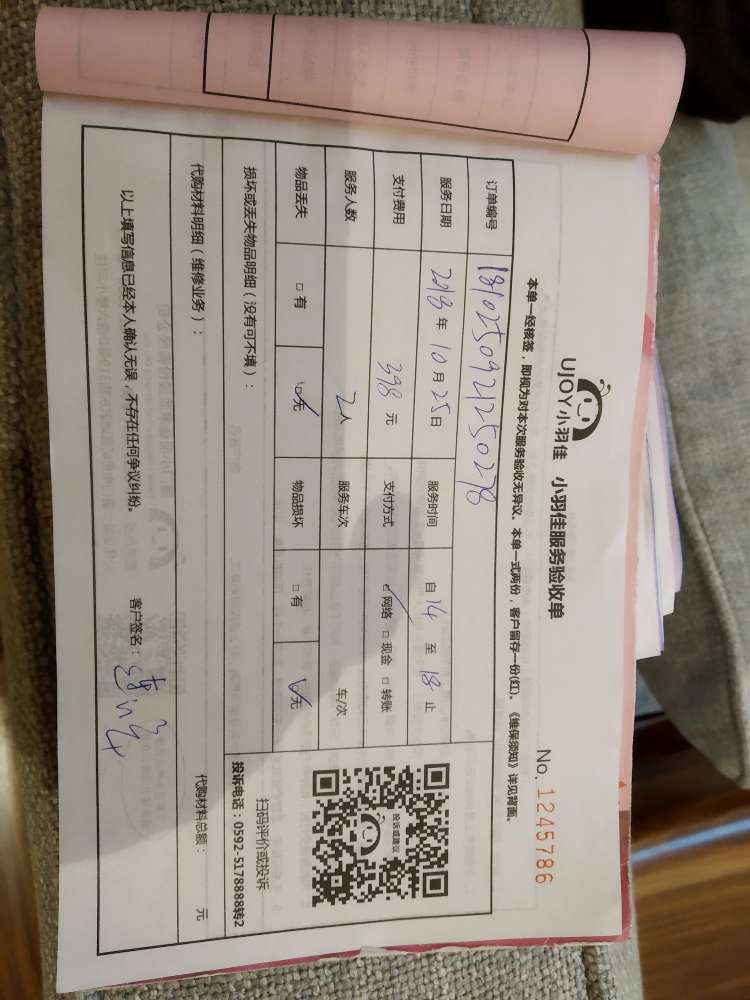 UJOY小羽佳 小羽佳服务验收单
No. 1245786
本单一经核签，即视为对本次服务验收无异议。本单一式两份，客户留存一份(红)。《维保须知》详见背面。
订单编号 1810250921250278
服务日期 2018年10月25日 服务时间 自14至18止
支付费用 398元 支付方式 ☑网络 □现金 □转账
服务人数 2人 服务车次 车/次
物品丢失 □有 ☑无 物品损坏 □有 ☑无
投诉或建议
扫码评价或投诉
投诉电话：0592-5178888转2
损坏或丢失物品明细（没有可不填）：
代购材料明细（维修业务）： 代购材料总额： 元
以上填写信息已经本人确认无误，不存在任何争议纠纷。 客户签名：